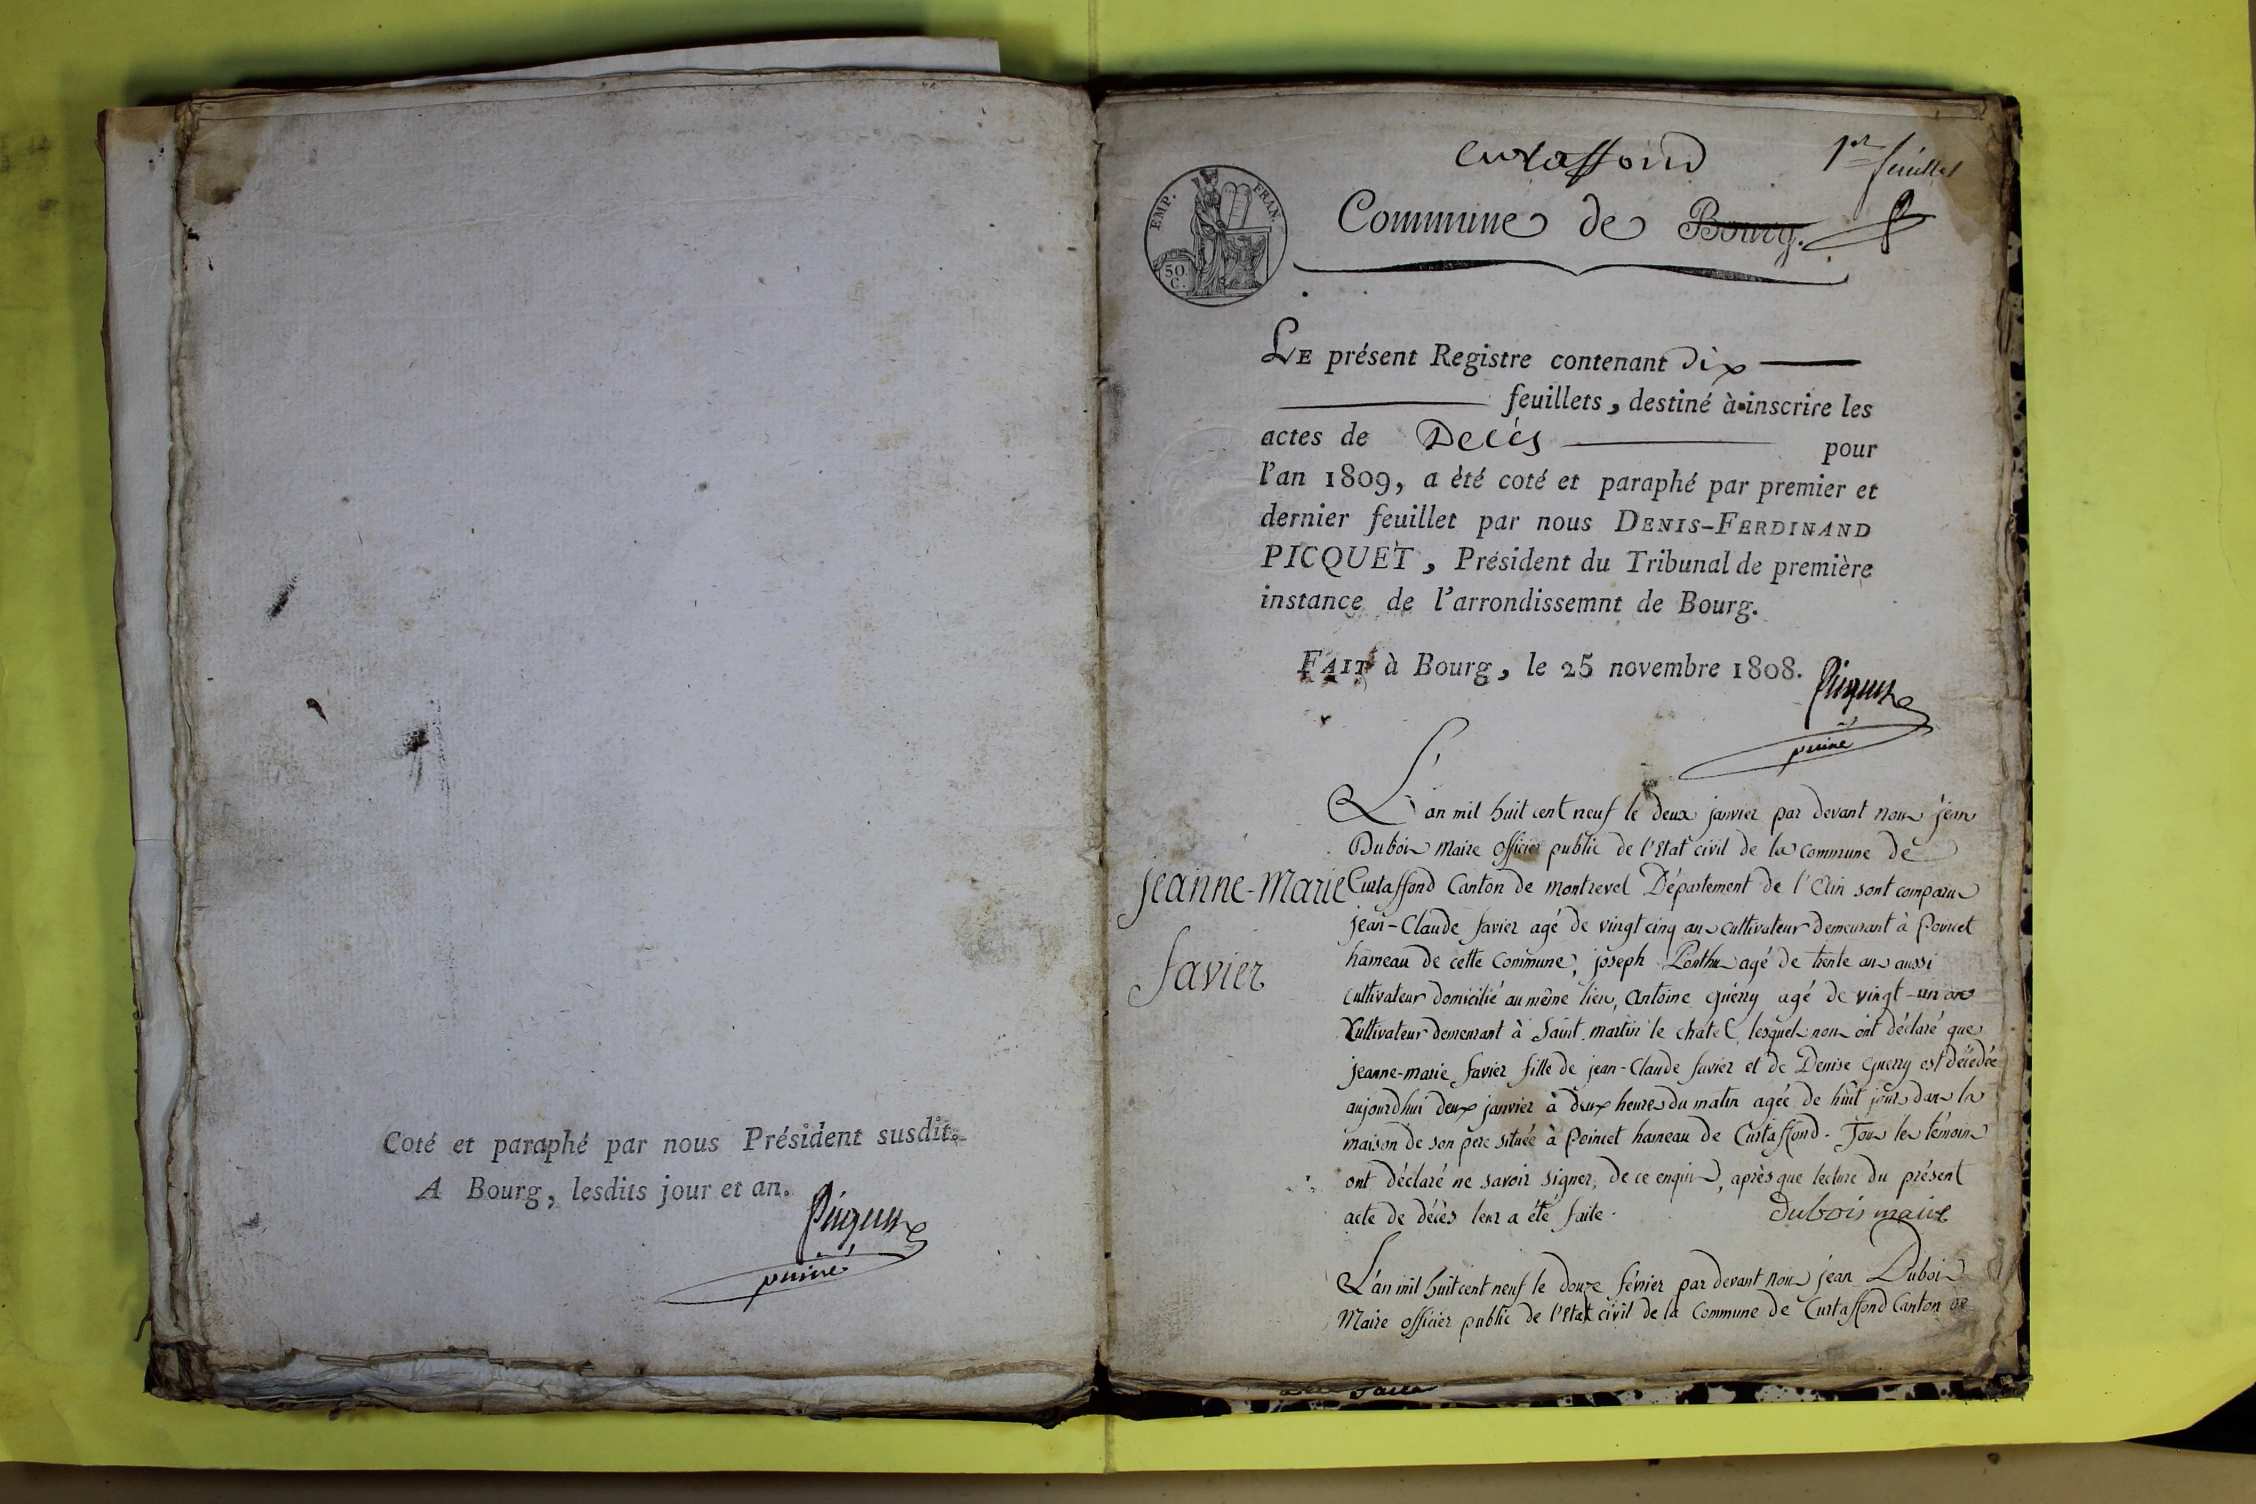 Coté et paraphé par nous Président susdit.
A Bourg, lesdits jour et an.
Picquet
curtaffond
1er feuillet
EMP. FRAN.
50
C.
Commune de Bourg.
LE présent Registre contenant dix
feuillets, destiné à inscrire les
actes de Décès pour
l'an 1809, a été coté et paraphé par premier et
dernier feuillet par nous DENIS-FERDINAND
PICQUET, Président du Tribunal de première
instance de l'arrondissemnt de Bourg.
FAIT à Bourg, le 25 novembre 1808.
Picquet
L'an mil huit cent neuf le deux janvier par devant nous jean
Dubois maire officier public de l'état civil de la commune de
Jeanne-Marie
favier
Curtaffond Canton de montrevel Département de l'Ain sont comparus
jean-Claude favier agé de vingt cinq ans cultivateur demeurant à Poincet
hameau de cette Commune, joseph Ponthus agé de trente ans aussi
cultivateur domicilié au même lieu, antoine guerry agé de vingt-un ans
Cultivateur demeurant à Saint martin le chatel, lesquels nous ont déclaré que
jeanne-marie favier fille de jean-Claude favier et de Denise guerry est décédée
aujourdhui deux janvier à deux heures du matin agée de huit jours dans la
maison de son pere située à Poincet hameau de Curtaffond. Tous les témoins
ont déclaré ne savoir signer, de ce enquis, après que lecture du présent
acte de décès leur a été faite.
Dubois maire
L'an mil huit cent neuf le douze février par devant nous jean Dubois
Maire officier public de l'état civil de la Commune de Curtaffond Canton de